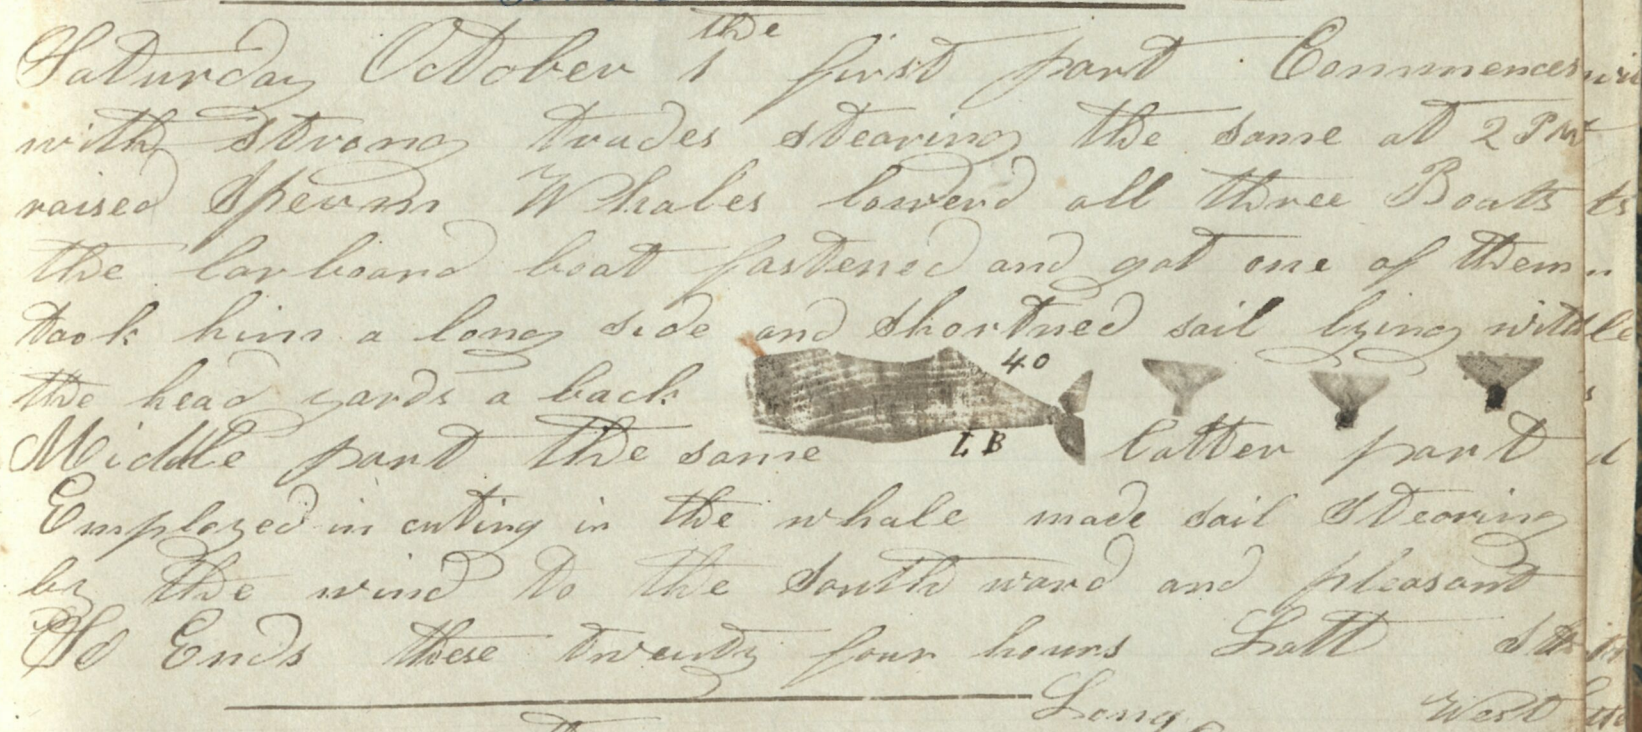 the
Saturday October 1 first part Commences
with strong trades stearing the same at 2 PM
raised Sperm Whales lowerd all three Boats
the larboard boat fastened and got one of them
took him a long side and shortned sail lying with
the head yards a back
40
LB
Middle part the same latter part
Employed in cuting in the whale made sail Stearing
by the wind to the South ward and pleasant
So Ends these twenty four hours Latt
Long West